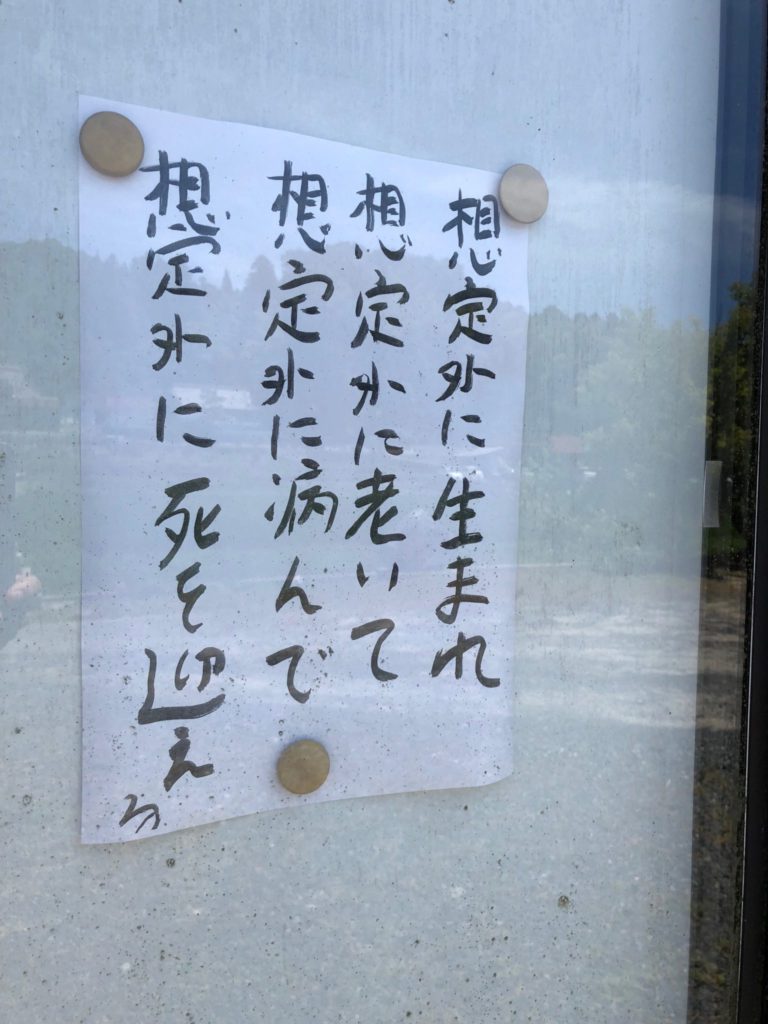 想定外に生まれ
想定外に老いて
想定外に病んで
想定外に死を迎える